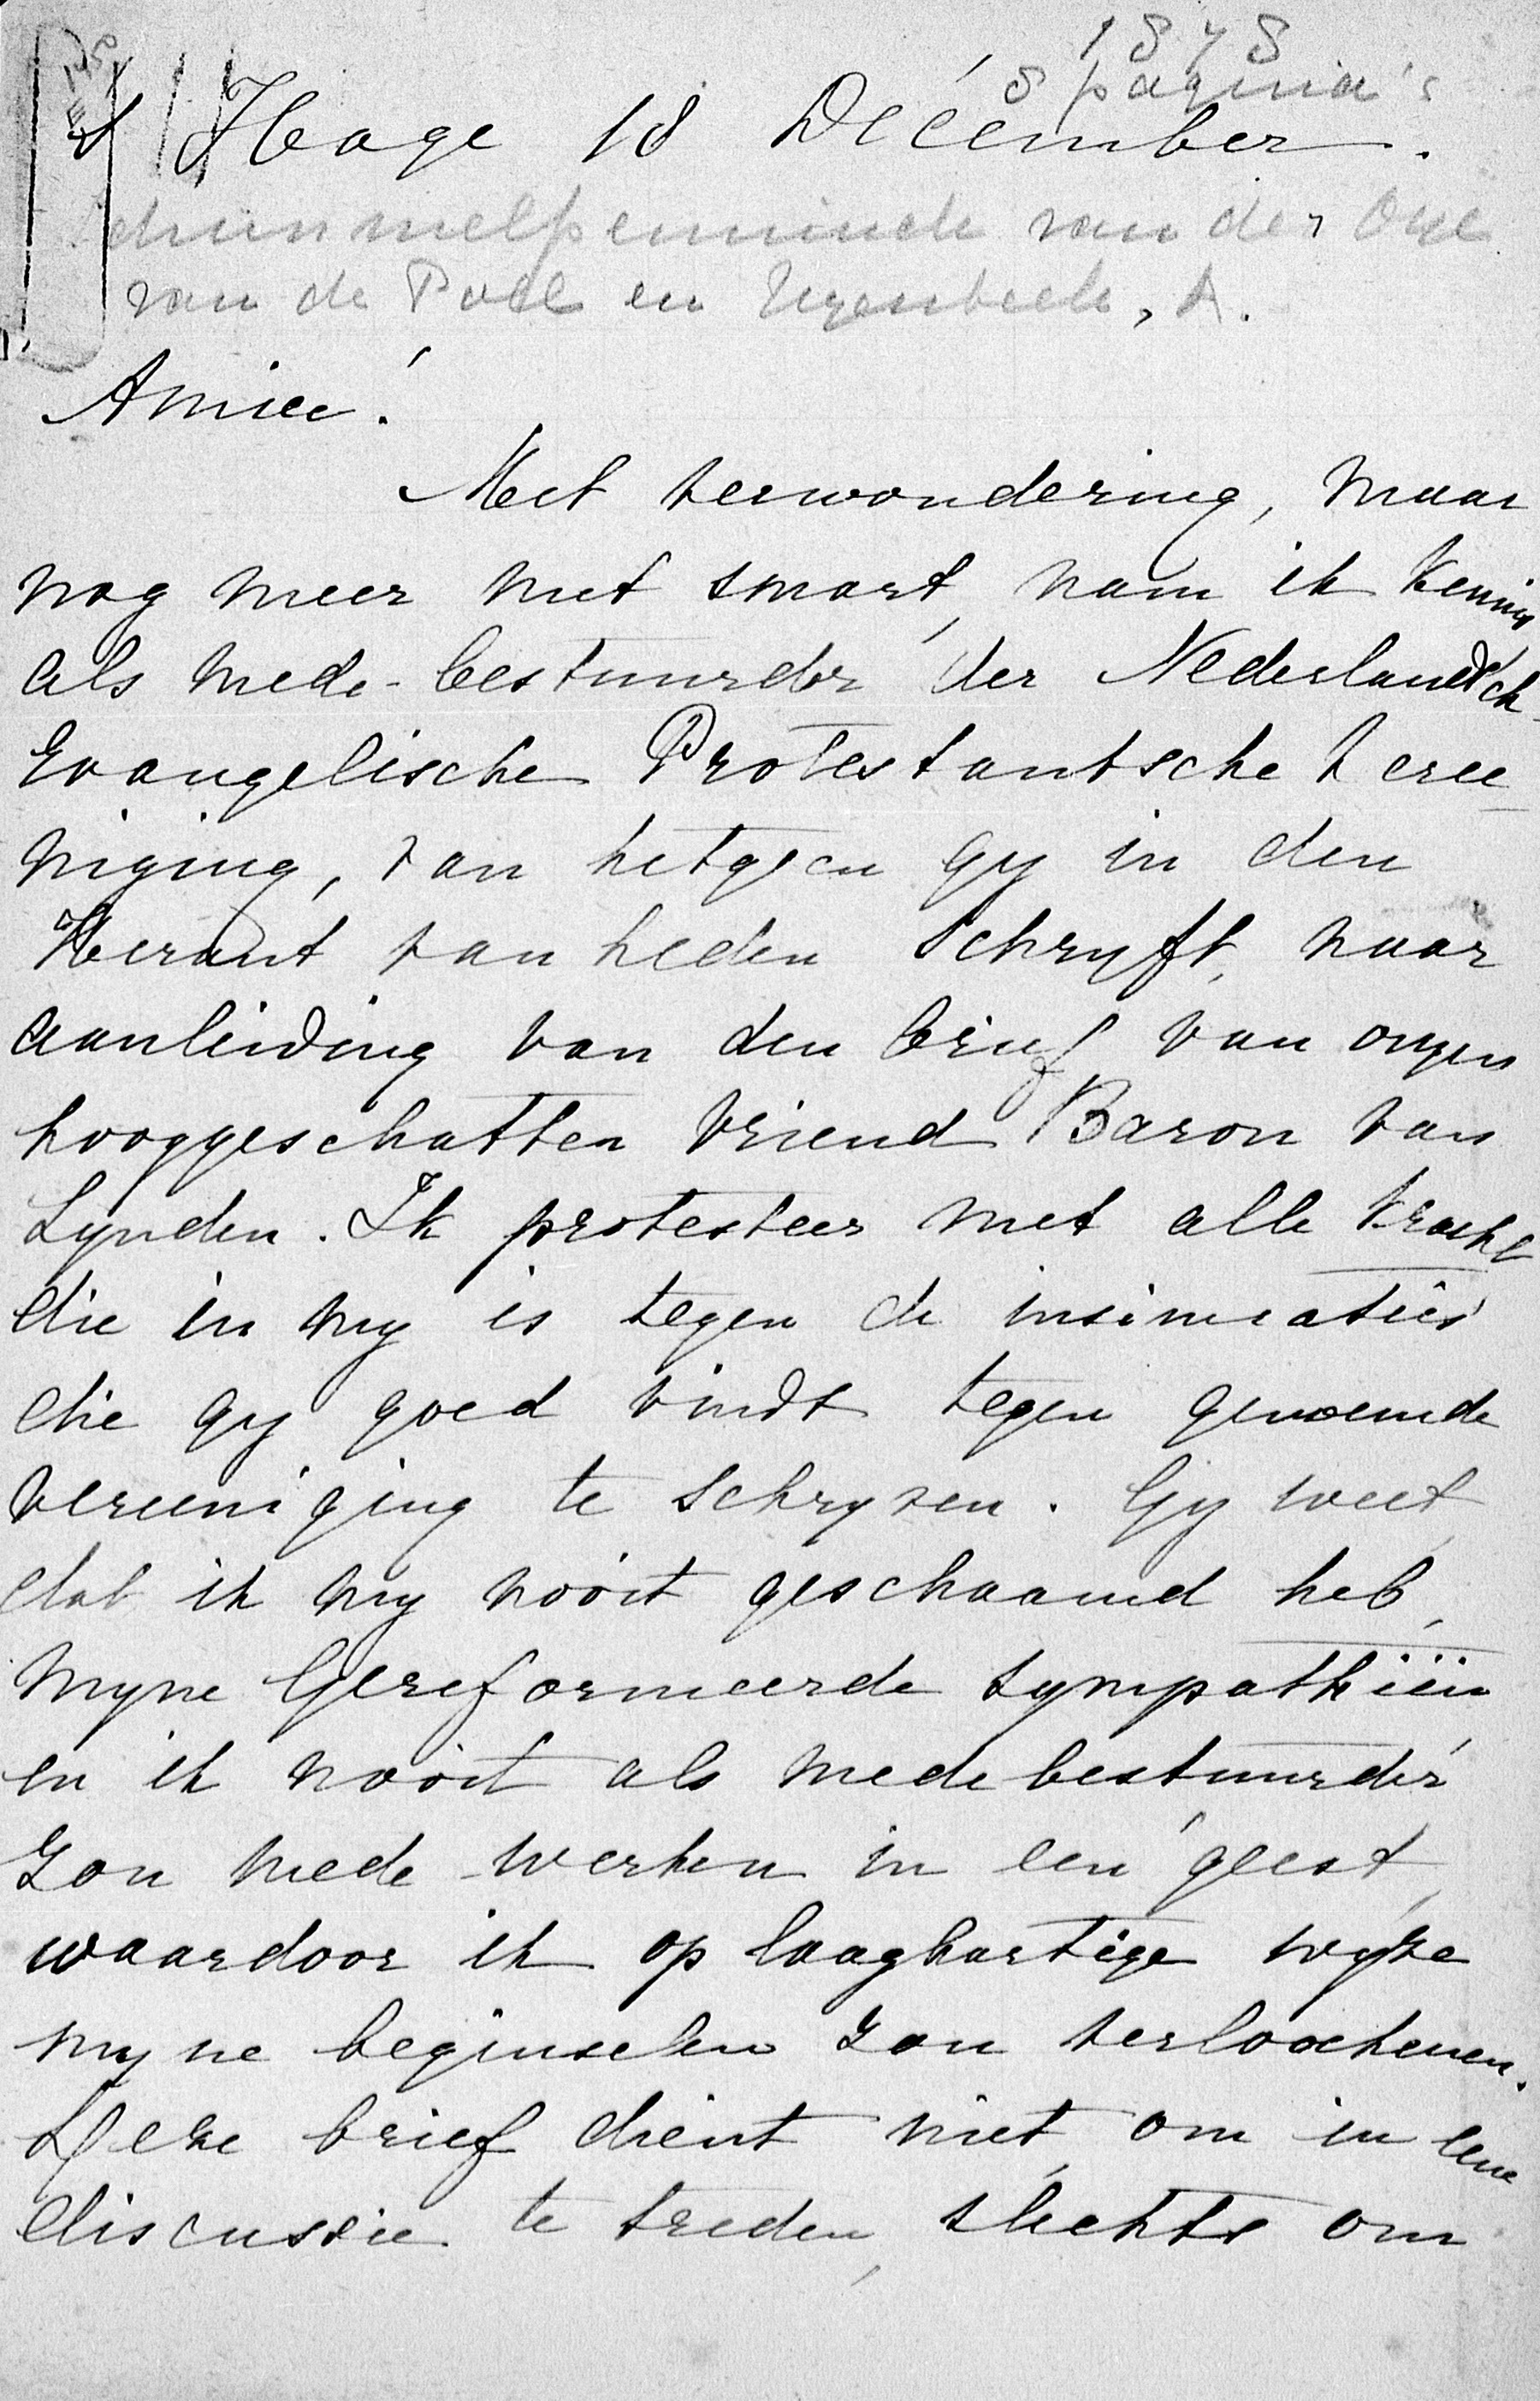 1878
8 pagina's
's Hage 18 December.
Schimmelpenninck van der Oye
van de Poll en Nyenbeek, A.
Amice!
Met verwondering, maar
nog meer met smart, nam ik kennis
als mede-bestuurder der Nederlandsch
Evangelische Protestantsche Veree
niging, van hetgeen gy in den
Heraut van heden schryft, naar
aanleiding van den brief van onzen
hooggeschatten vriend Baron van
Lynden. Ik protesteer met alle kracht
die in my is tegen de insinuaties
die gy goed vindt tegen genoemde
vereeniging te schryven. Gy weet,
dat ik my nooit geschaamd heb,
myne Gereformeerde sympathiën
en ik nooit als medebestuurder
zou mede-werken in een geest,
waardoor ik op laaghartige wyze
myne beginselen zou verloochenen.
Deze brief dient niet, om in eene
discussie te treden, slechts om